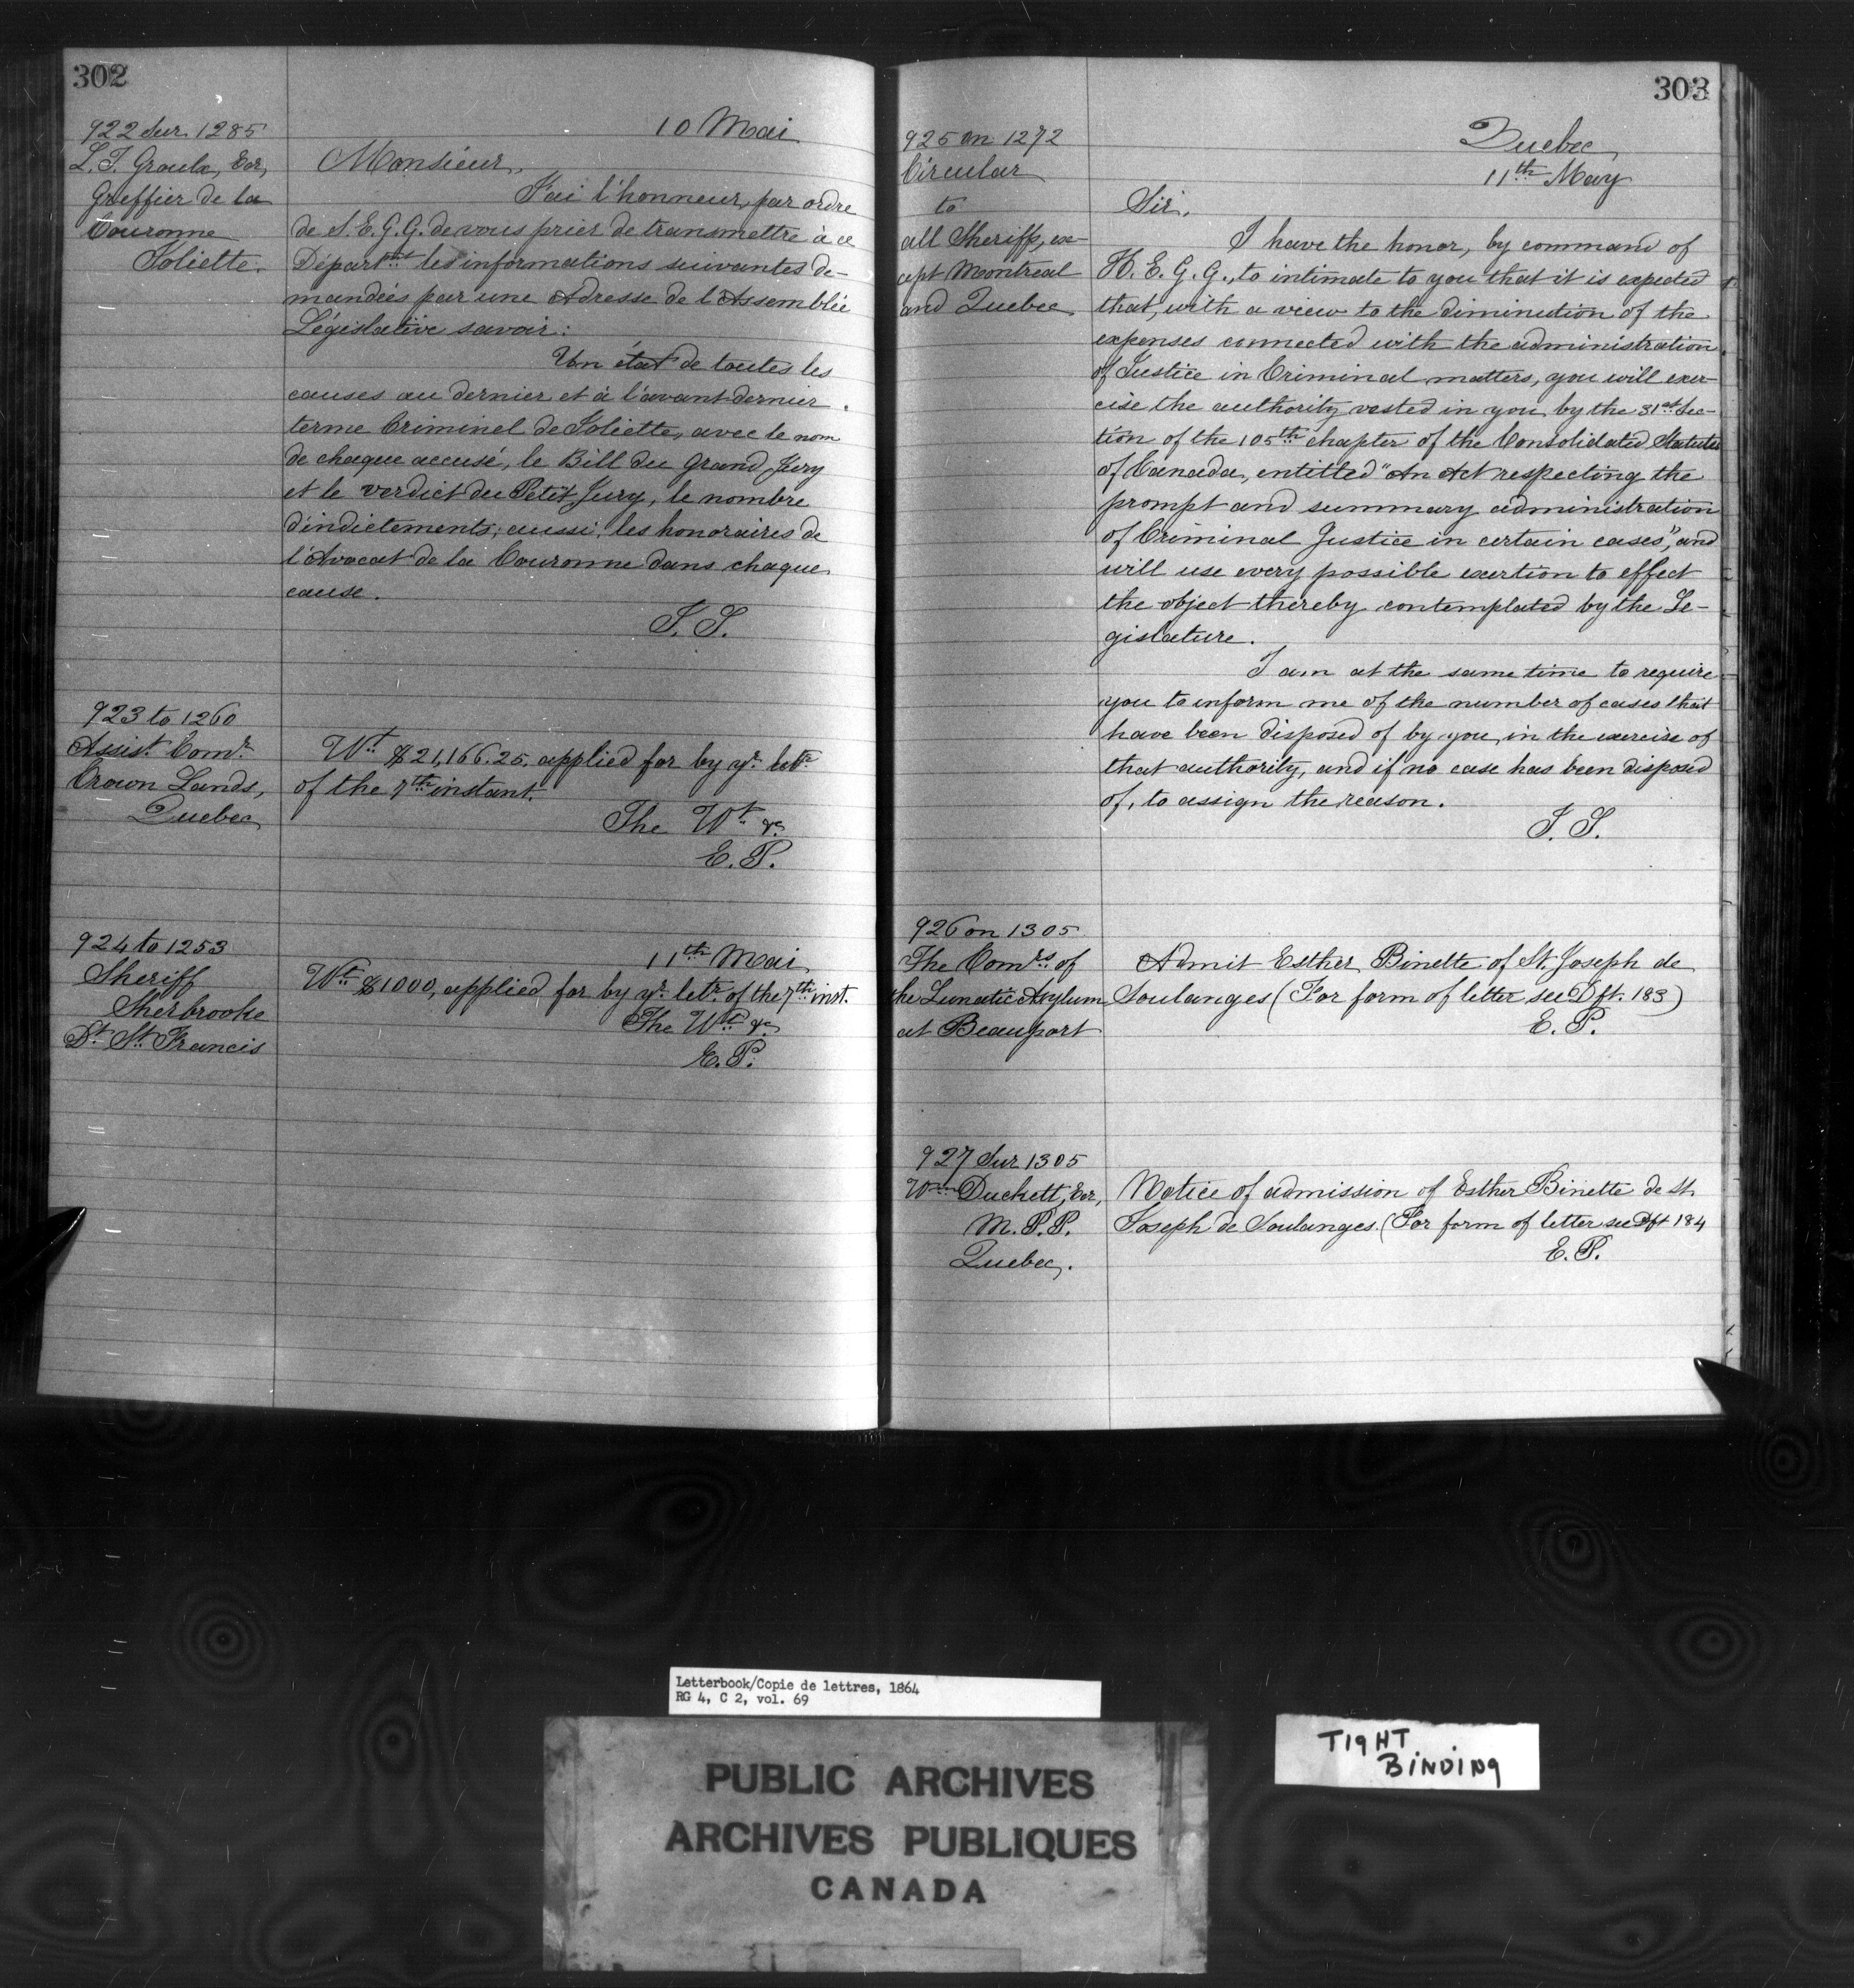 302
922 Sur 1285
L. J. Groulx, Ecr,
Greffier de la
Couronne
Joliette.
10 Mai
Monsieur,
J'ai l'honneur, par ordre
de S. E. G. G. de vous prier de transmettre à ce
Départmt les informations suivantes de-
mandées par une Adresse de l'Assemblée
Législative savoir:
Un état de toutes les
causes au dernier et à l'avant dernier
terme Criminel de Joliette, avec le nom
de chaque accusé, le Bill du Grand Jury
et le verdict du Petit Jury, le nombre
d'indictements; aussi, les honoraires de
l'Avocat de la Couronne dans chaque
cause.
923 to 1260
Assist. Comr.
Crown Lands,
Quebec
Wt. $21,166.25. applied for by yr. letr.
of the 7th instant.
The Wt. &c
E. P.
924 to 1253
Sheriff
Sherbrooke
Dt. St. Francis
11th Mai
Wt. $1000, applied for by yr. letr. of the 7th inst.
The Wt. &c
E. P.
303
925 on 1272
Circular
to
all Sheriffs, ex-
cept Montreal
and Quebec.
Quebec
11th May
Sir,
I have the honor, by command of
H. E. G. G., to intimate to you that it is expected
that, with a view to the diminution of the
expenses connected with the administration
of Justice in Criminal matters, you will exer-
cise the authority vested in you by the 31st Sec-
tion of the 105th chapter of the Consolidated Statutes
of Canada, entitled "An Act respecting the
prompt and summary administration
of Criminal Justice in certain cases", and
will use every possible exertion to effect
the object thereby contemplated by the Le-
gislature.
I am at the same time to require
you to inform me of the number of cases that
have been disposed of by you, in the exercise of
that authority, and if no case has been disposed
of, to assign the reason.
926 on 1305
The Comrs. of
the Lunatic Asylum
at Beauport
Admit Esther Binette of St. Joseph de
Soulanges (For form of letter see Dft. 183)
E. P.
927 Sur 1305
Wm. Duckett, Ecr,
M. P. P.
Quebec.
Notice of admission of Esther Binette de St.
Joseph de Soulanges. (For form of letter see Dft 184
E. P.
Letterbook/Copie de lettres, 1864
RG 4, C 2, vol. 69
PUBLIC ARCHIVES
ARCHIVES PUBLIQUES
CANADA
TIGHT
BINDING